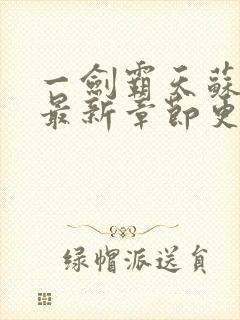 一劍霸天蘇
最新章節更
绿帽派送員